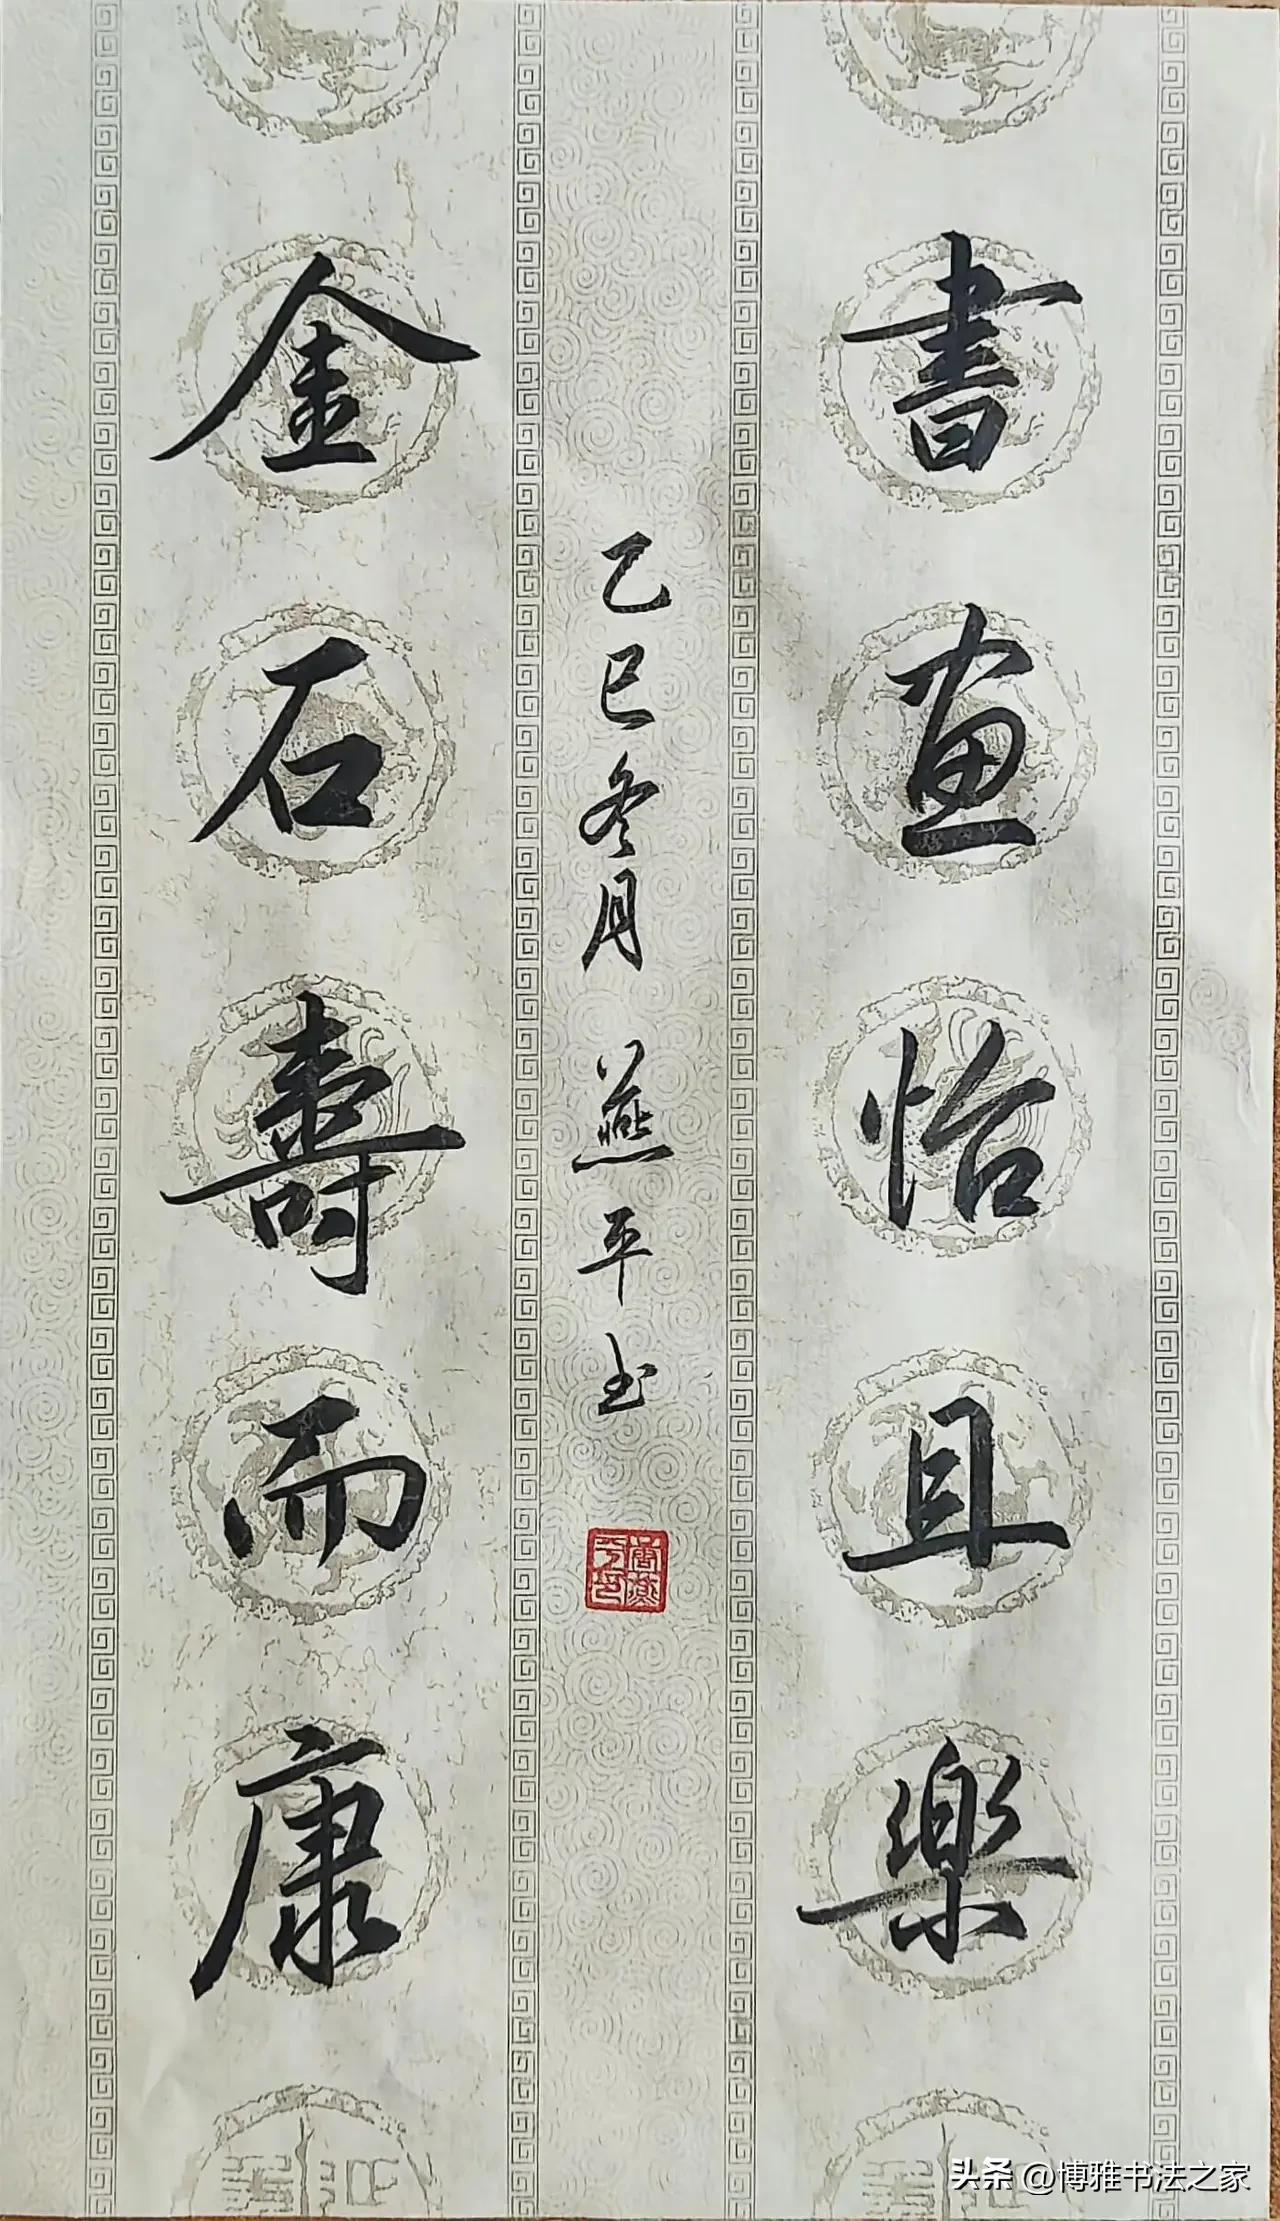 書画怡且樂
金石壽而康
乙巳冬月 燕平书
头条 @博雅书法之家